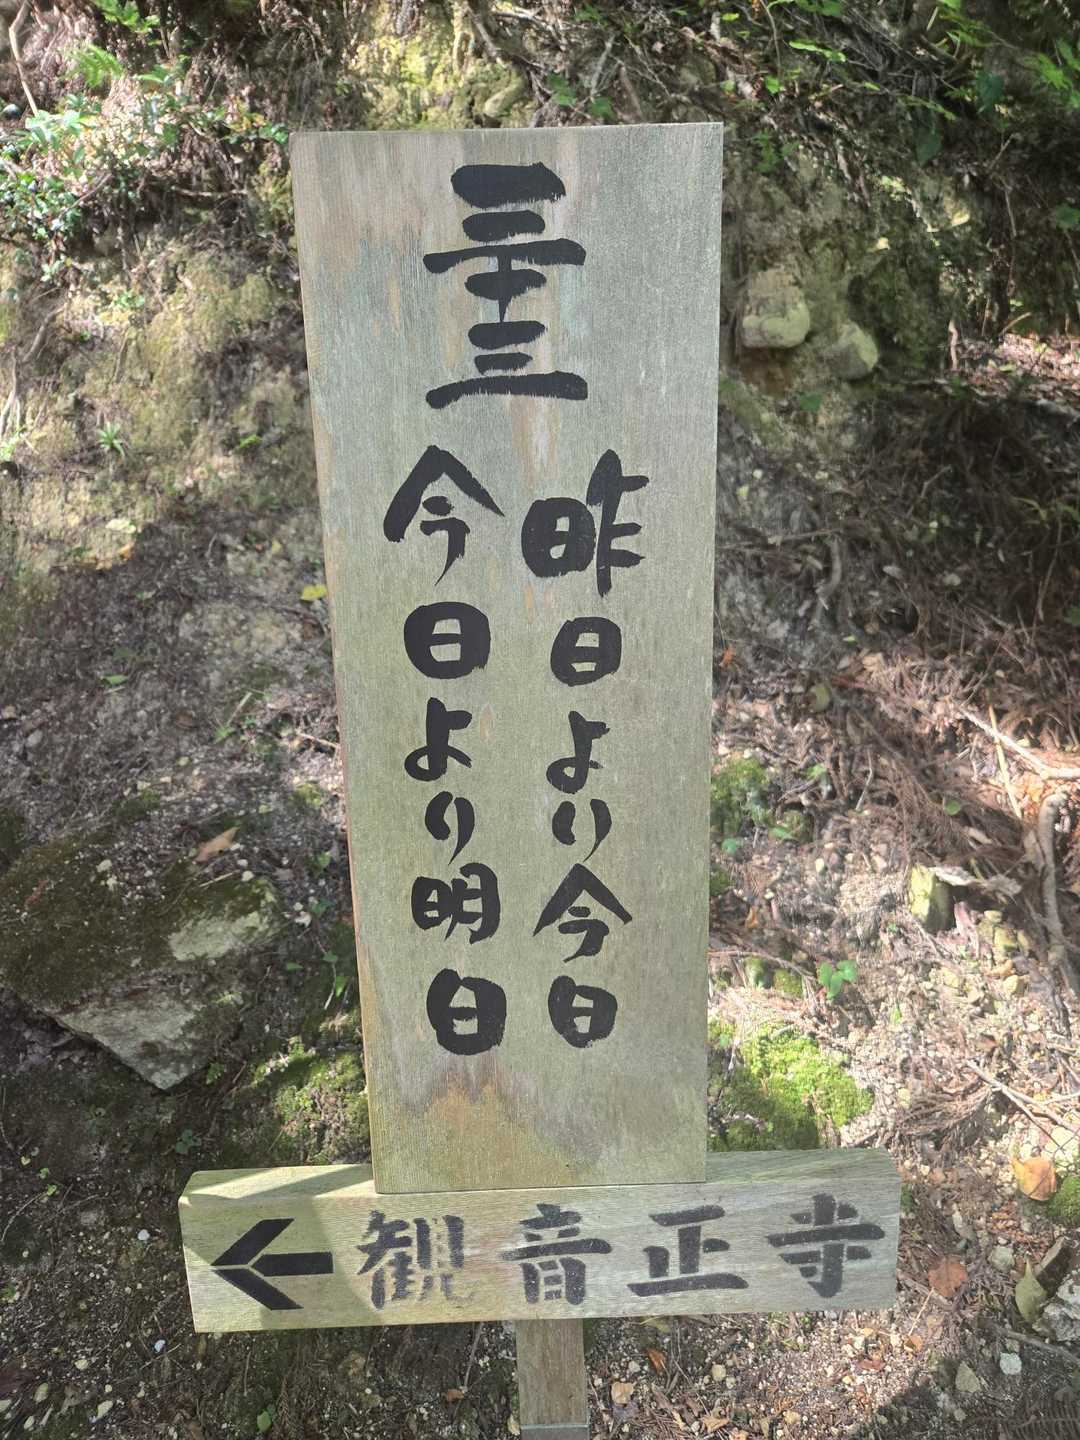 三十三
昨日より今日
今日より明日
←観音正寺